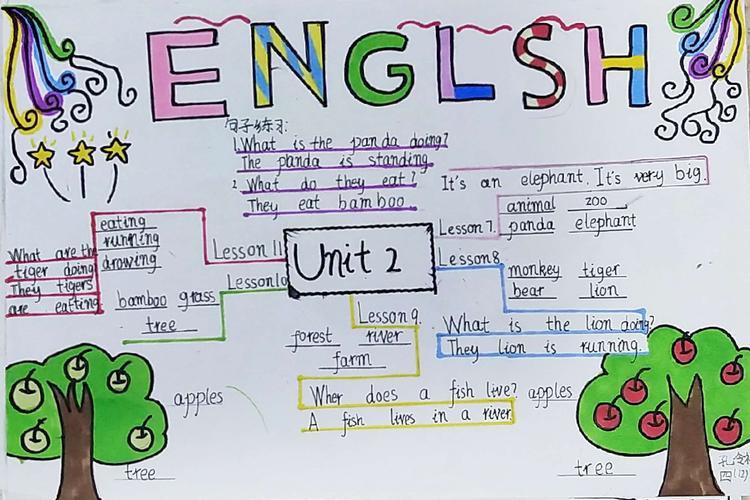 ENGLSH
句子练习:
1. What is the panda doing?
The panda is standing.
2 What do they eat?
They eat bamboo.
It's an elephant. It's very big.
Lesson 7.
animal zoo
panda elephant
Lesson 8.
monkey tiger
bear lion
What is the lion doing?
They lion is running.
Unit 2
Lesson 11
eating
running
drowing
What are the
tiger doing
They tigers
are eatting
Lesson 10
bamboo grass
tree
Lesson 9.
forest river
farm
Wher does a fish live?
A fish lives in a river.
apples
tree
apples
tree
四(12)